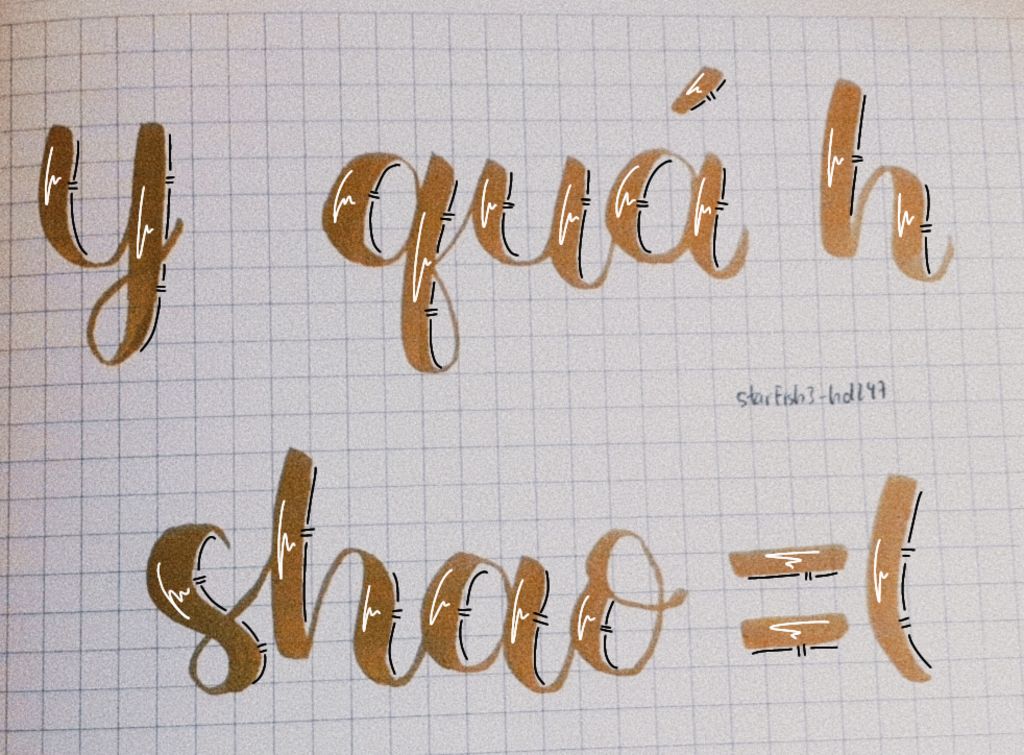 y quá h
starfish3-hd247
shao =(